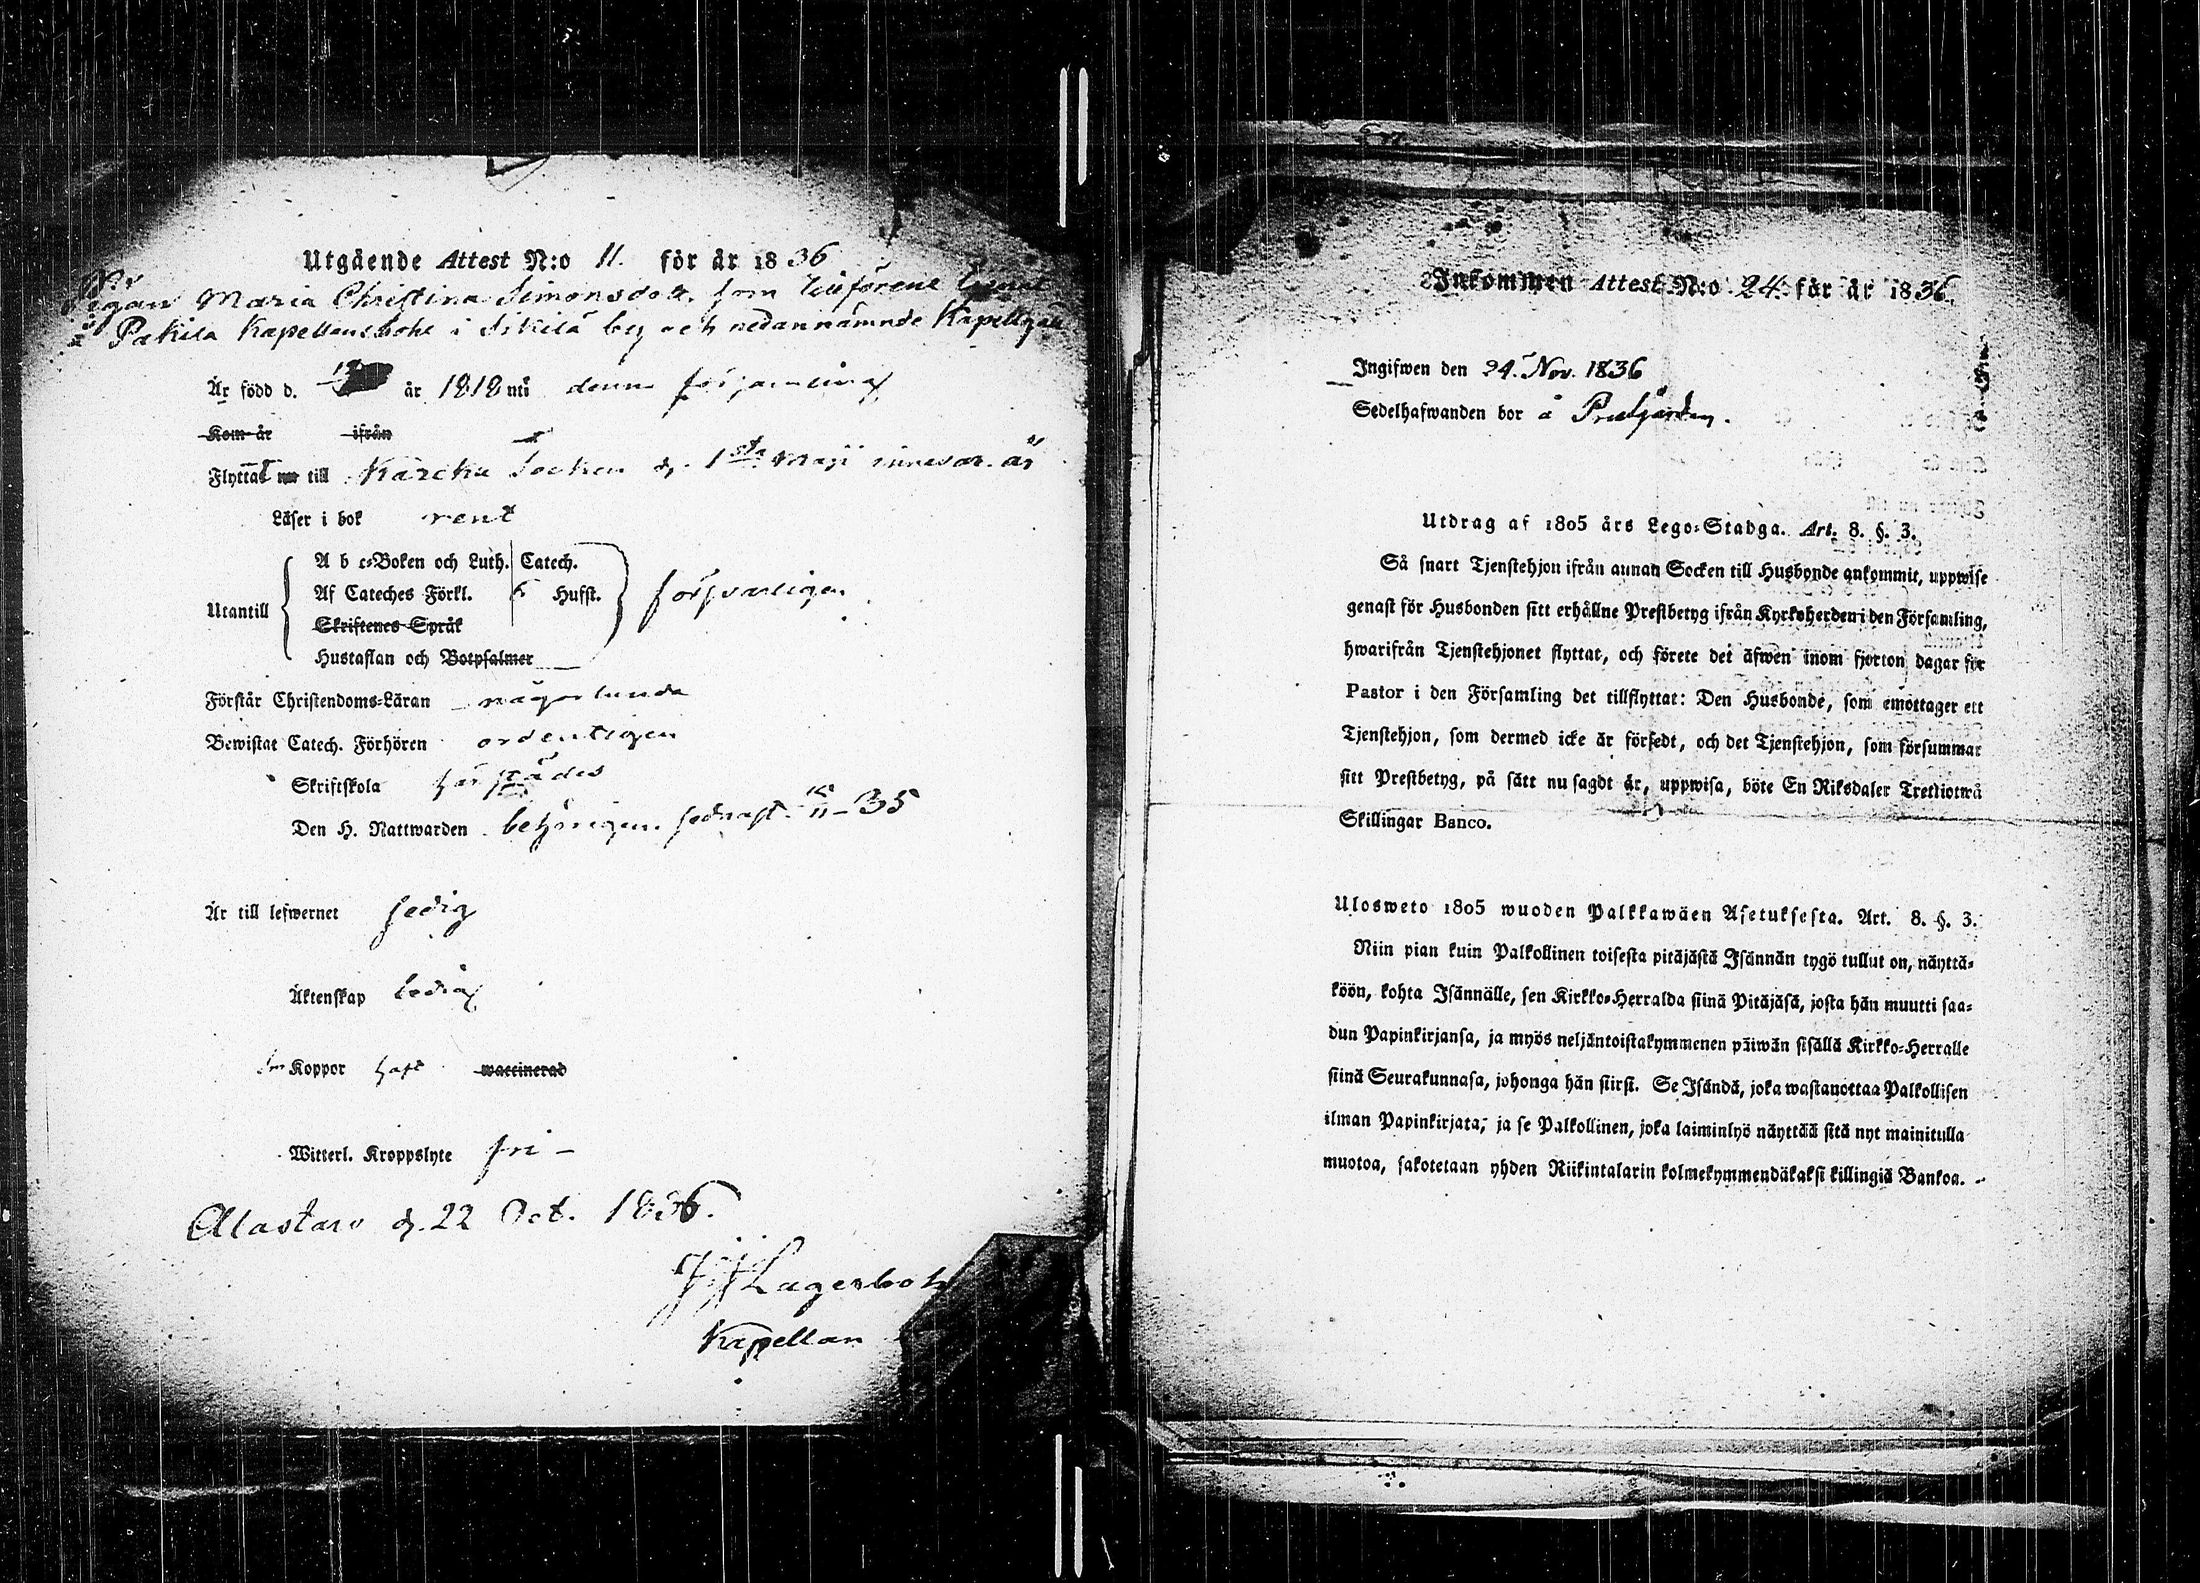 Utgående Attest N:o 11. för år 1836
Pigan Maria Christina Simonsdotr. som tillförene tjenat
å Pakila Kapellansbohl i Sikilä by och nedannämnde Kapellgäll
Är född d. år 1818 uti denna församling
Kom år ifrån
Flyttat nu till Karcku Socken d. 1sta Maji innevar. år
Läser i bok rent
A b c-Boken och Luth. Catech.
Af Cateches Förkl. Hufst.
Utantill försvarligen
Skriftenes Språk
Hustaflan och Botpsalmer
Förstår Christendoms-Läran någorlunda
Bewistat Catech. Förhören ordentligen
Skriftskola härstädes
Den H. Nattwarden behörigen sednast 35
Är till lefwernet sedig
Äktenskap ledig
Koppor haft waccinerad
Witterl. Kroppslyte fri –
Alastaro d. 22 Oct. 1836.
Kapellan
Inkommen Attest N:o 24. för år 1836.
Ingifwen den 24. Nov. 1836
Sedelhafwanden bor å Prestgården.
Utdrag af 1805 års Lego-Stadga. Art. 8. §. 3.
Så snart Tjenstehjon ifrån annan Socken till Husbonde ankommit, uppwise
genast för Husbonden sitt erhållne Prestbetyg ifrån Kyrkoherden i den Församling,
hwarifrån Tjenstehjonet flyttat, och förete det äfwen inom fjorton dagar för
Pastor i den Församling det tillflyttat: Den Husbonde, som emottager ett
Tjenstehjon, som dermed icke är försedt, och det Tjenstehjon, som försummar
sitt Prestbetyg, på sätt nu sagdt är, uppwisa, böte En Riksdaler Trettiotwå
Skillingar Banco.
Ulosweto 1805 wuoden Palkkawäen Asetuksesta. Art. 8. §. 3.
Niin pian kuin Palkollinen toisesta pitäjästä Isännän tygö tullut on, näyttä-
köön, kohta Isännälle, sen Kirkko-Herralda siinä Pitäjäsä, josta hän muutti saa-
dun Papinkirjansa, ja myös neljäntoistakymmenen päiwän sisällä Kirkko-Herralle
siinä Seurakunnasa, johonga hän siirsi. Se Isändä, joka wastanottaa Palkollisen
ilman Papinkirjata; ja se Palkollinen, joka laiminlyö näyttää sitä nyt mainitulla
muotoa, sakotetaan yhden Riikintalarin kolmekymmendäkaksi killingiä Bankoa.